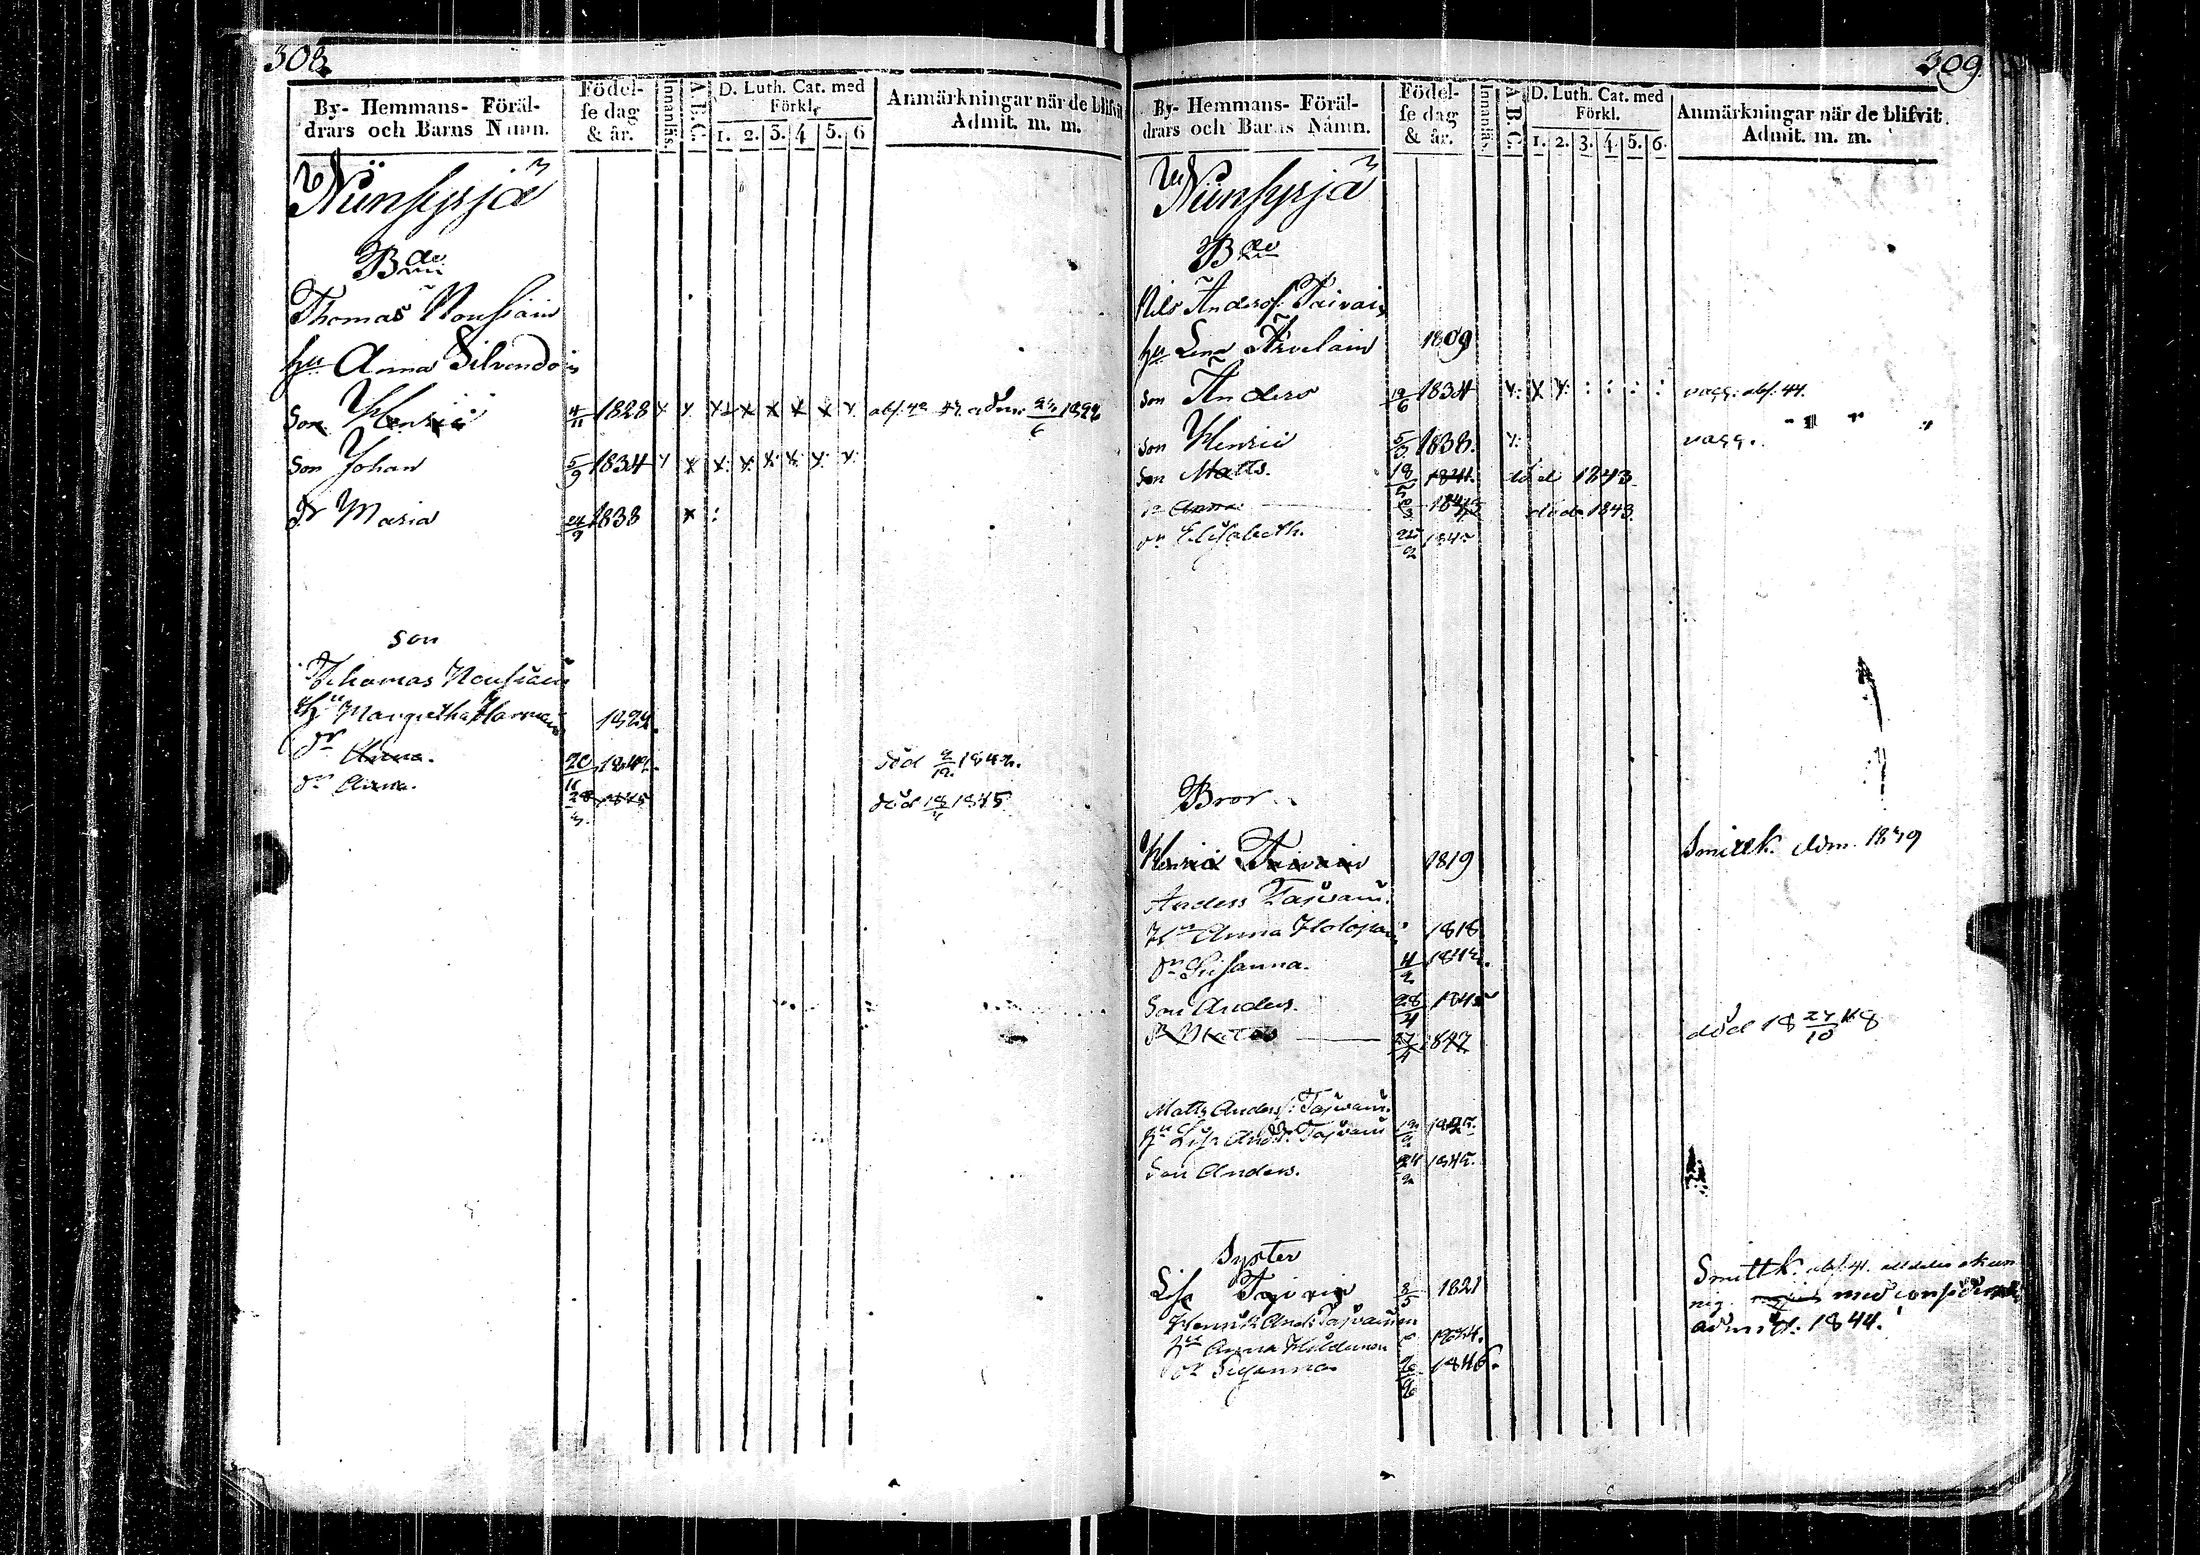 308.
By- Hemmans- Föräl-
drars och Barns Namn.
Födel-
se dag
& år.
Innanläs.
A.B.C.
D. Luth. Cat. med
Förkl.
1. 2. 3. 4 5. 6
Anmärkningar när de blifvit
Admit. m. m.
Niinsyrjä
Bde
Thomas Nousiain
hu Anna Silvendoin
Son Henric 4/11 1828
Son Johan 5/9 1834
dr Maria 24/9 1838
son
Thomas Nousiain
hu Margretha 1824.
dr Anna. 20/11 1842. död 2/12 1842.
dr Anna. 28/3 1845 död 18/4 1845
309.
By- Hemmans- Föräl-
drars och Barns Namn.
Födel-
se dag
& år.
Innanläs.
A.B.C.
D. Luth. Cat. med
Förkl.
1. 2. 3. 4. 5. 6.
Anmärkningar när de blifvit
Admit. m. m.
Niinsyrjä
Bde
Nils Anders. Taivain
hu Lena 1809
son Anders 1834 abs. 44.
son Henric 5/3 1838.
son Matts. 18/5 1841. död 1843.
dr Anna 1843 död 1843.
dr Elisabeth. 25/2 1845
Bror
Henric Taivain 1819 Smittk. adm. 1839
Anders Taivain.
Hu Anna Holopain 1818
dr Susanna. 4/2 1842.
Son Anders. 28/4 1845
S Matts 27/4 1847 död 18 27/10 48
Matts Anders. Taivain.
hu Lisa And. Taivain
Son Anders. 24/2 1845.
Syster
Lisa Taivain 8/5 1821 Smittk. abs. 41. alldeles okun
nig med
Henrik And. Taivainen admitt. 1844.
hu Anna 1824.
dr Susanna 1846.